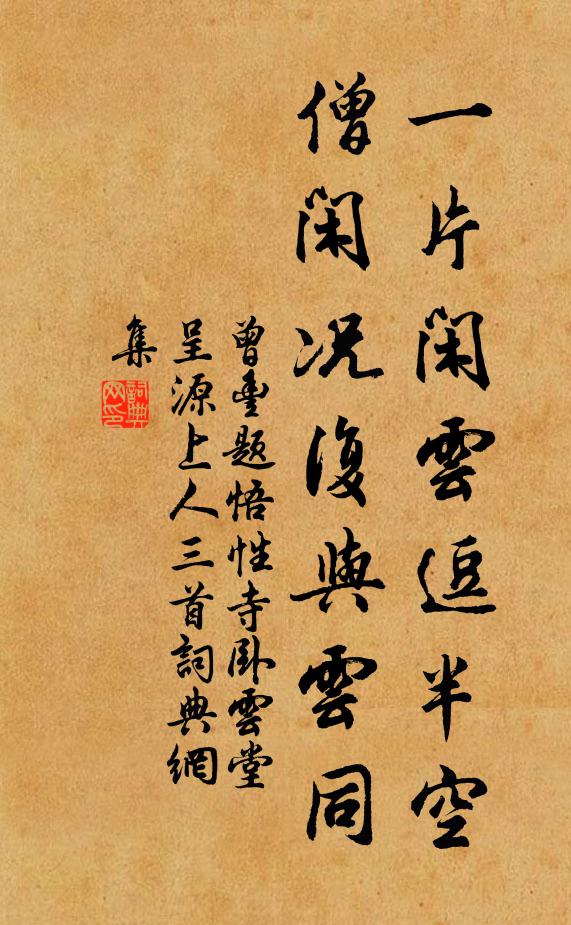 一片閑雲逗半空
僧閑况復與雲同
曾豊題悟性寺卧雲堂
呈源上人三首詞典網
集
詞典
网印